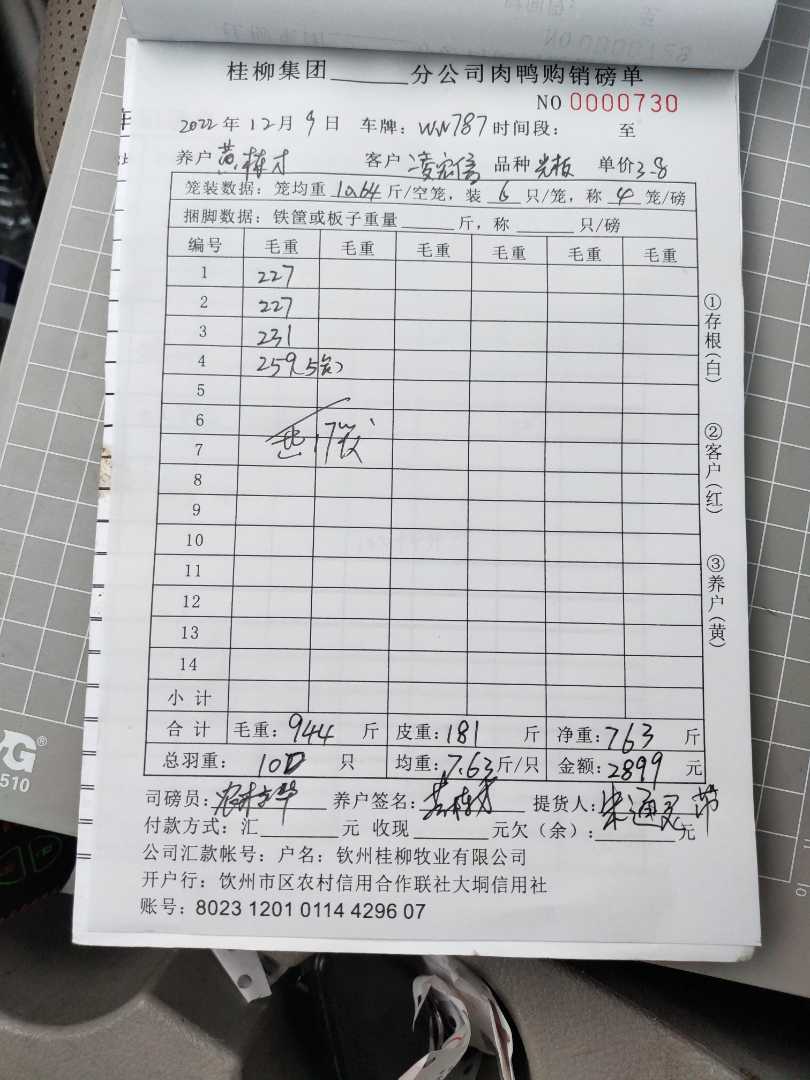 桂柳集团______分公司肉鸭购销磅单
NO 0000730
2022年12月9日 车牌:WN787 时间段: 至
养户 黄栋才 客户 凌宏信 品种 光板 单价3.8
笼装数据:笼均重 10.64 斤/空笼,装 6 只/笼,称 4 笼/磅
捆脚数据:铁筐或板子重量______斤,称______只/磅
编号 毛重 毛重 毛重 毛重 毛重 毛重
1 227
2 227
3 231
4 259(5笼)
5
6
共17笼
7
8
9
10
11
12
13
14
小计
合计 毛重:944 斤 皮重:181 斤 净重:763 斤
总羽重: 100 只 均重:7.63斤/只 金额:2899 元
司磅员: 养户签名:黄栋才 提货人:
付款方式:汇______元 收现______元欠(余):______元
公司汇款帐号:户名:钦州桂柳牧业有限公司
开户行:饮州市区农村信用合作联社大垌信用社
账号:8023 1201 0114 4296 07
①存根(白)
②客户(红)
③养户(黄)
510